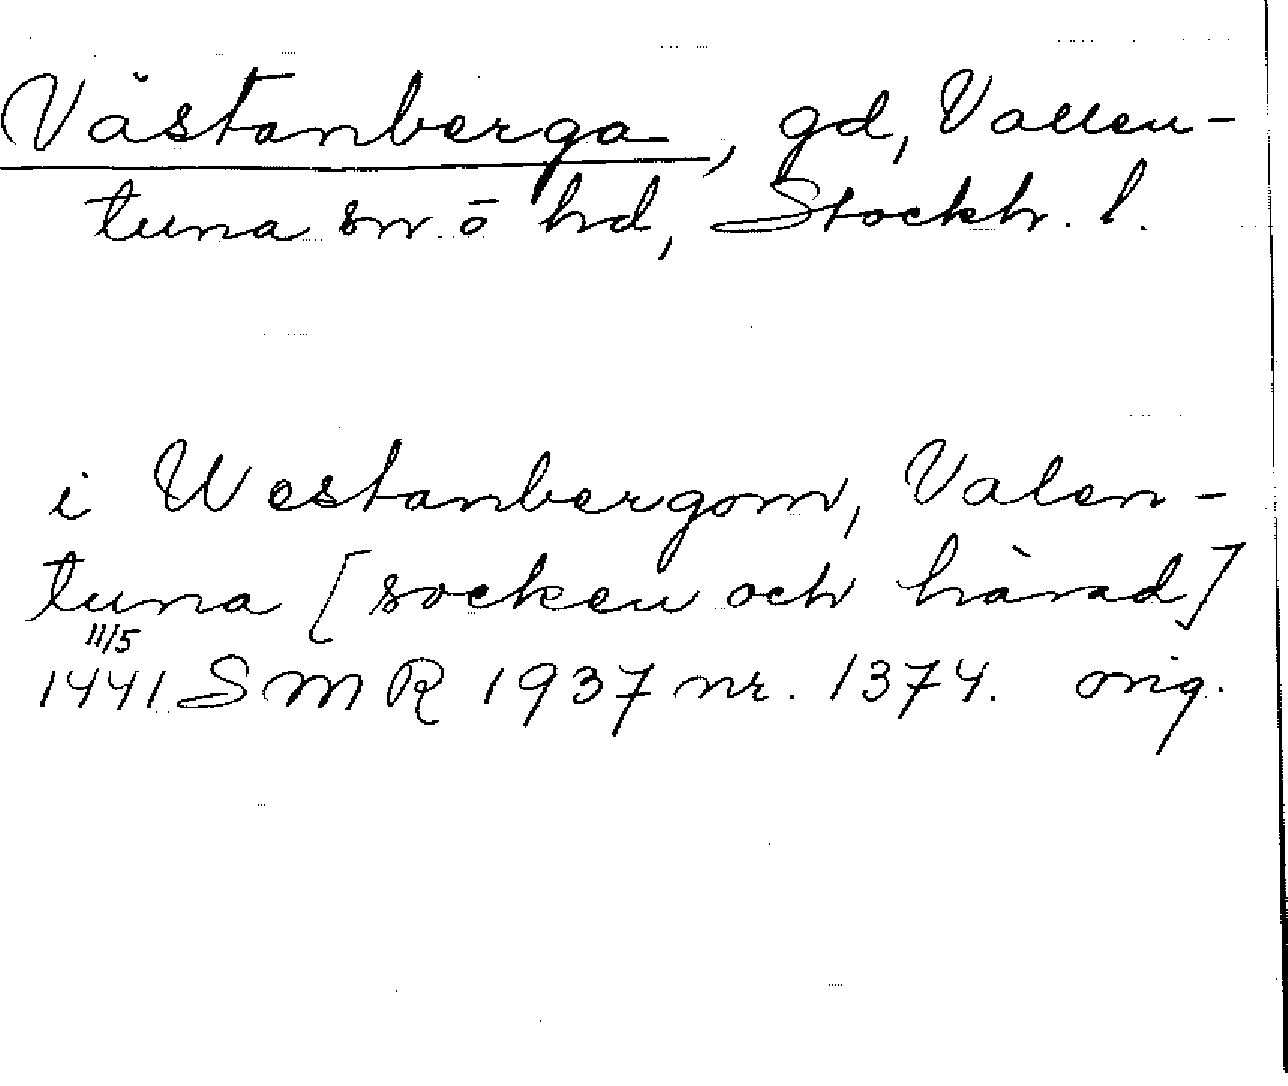 Västanberga, gd, Vallen-
tuna sn o hd, Stockh. l.
i Westanbergom, Valen-
tuna [socken och härad]
11/5
1441 SMR 1937 nr. 1374. orig.